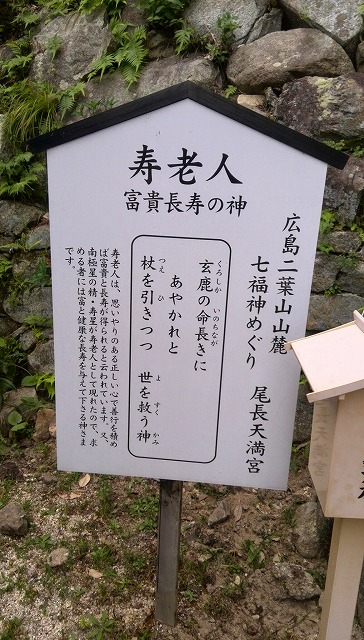 寿老人
富貴長寿の神
広島二葉山山麓
七福神めぐり 尾長天満宮
玄鹿の命長きに
くろしか いのちなが
あやかれと
杖を引きつつ 世を救う神
つえ ひ よ すく かみ
寿老人は、思いやりのある正しい心で善行を積め
ば富貴と長寿が得られると云われています。又、
南極星の精・寿星が寿老人として現れたので、求
める者には富と健康な長寿を与えて下さる神さま
です。